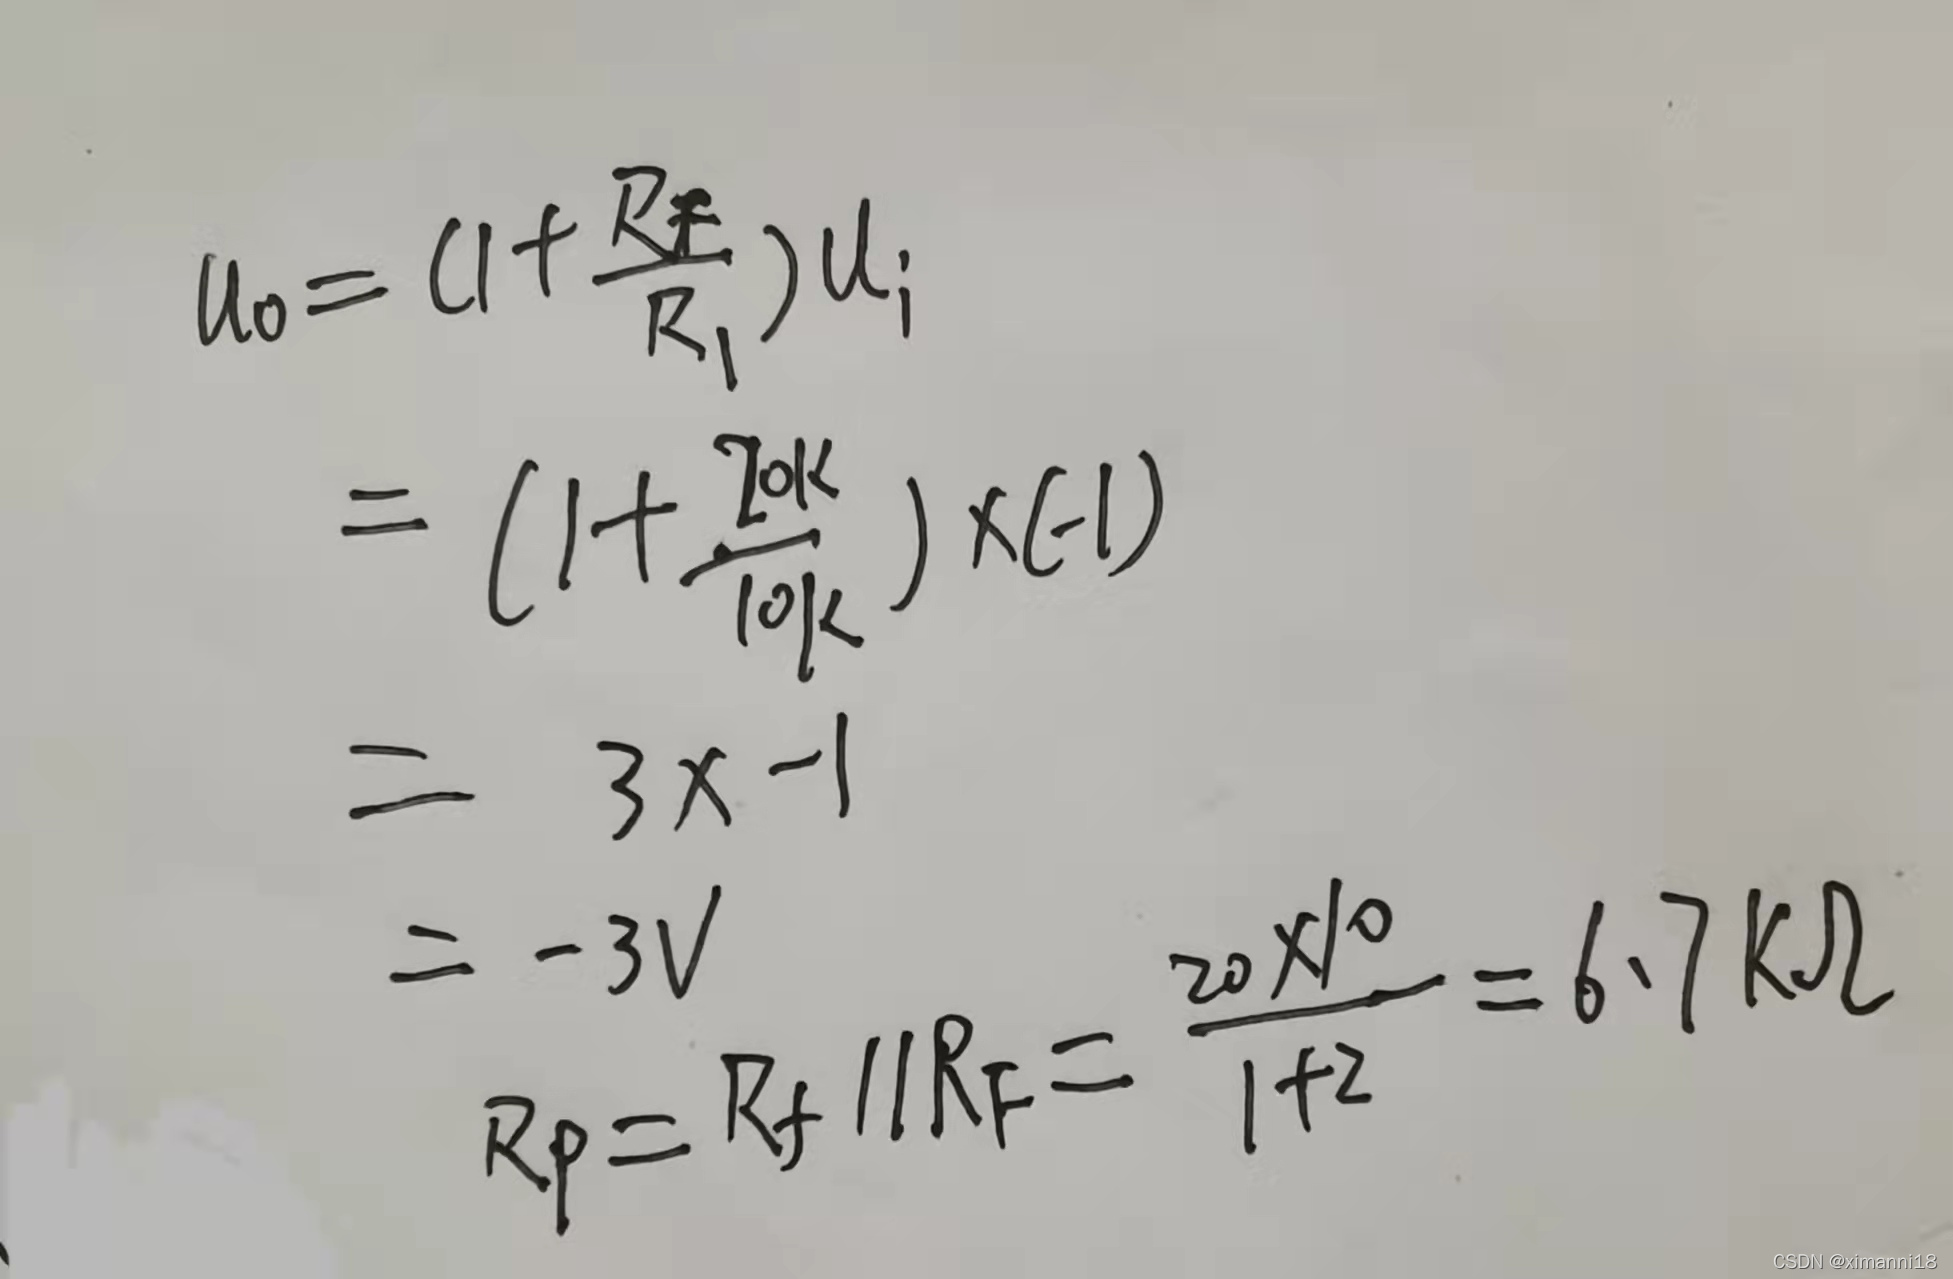 u₀ = (1 + RF/R₁) uᵢ
= (1 + 20K/10K) × (-1)
= 3 × -1
= -3V
Rp = Rf // RF = 20×10/1+2 = 6.7KΩ
CSDN @ximanni18